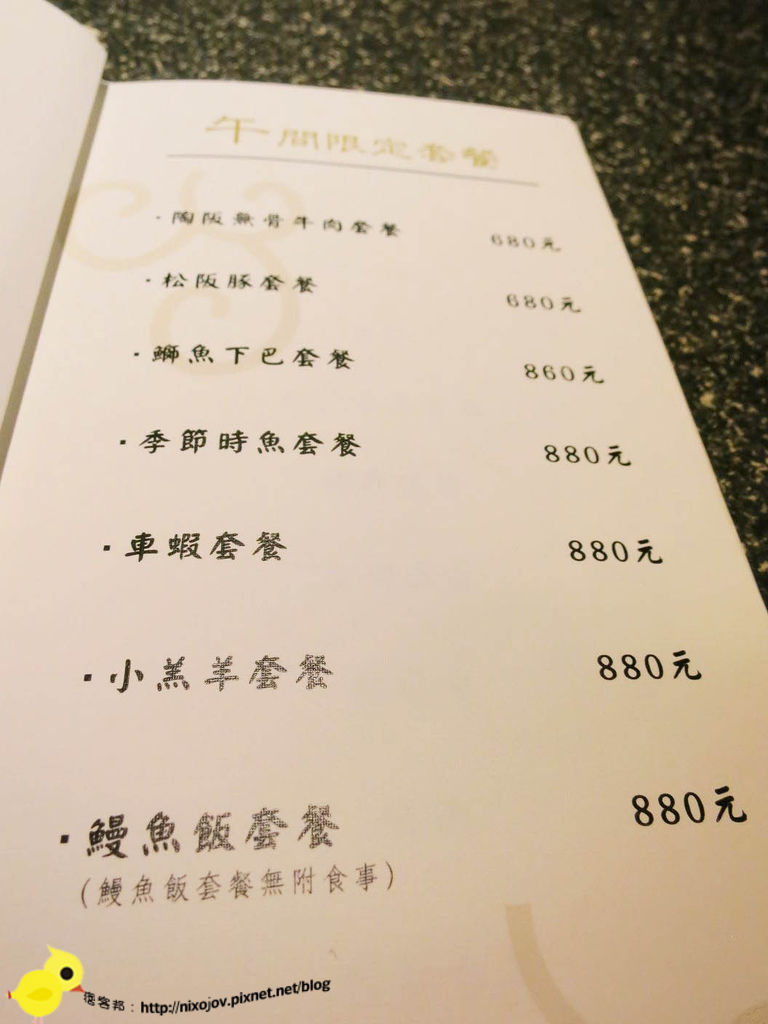 午間限定套餐
·陶阪無骨牛肉套餐 680元
·松阪豚套餐 680元
·鰤魚下巴套餐 860元
·季節時魚套餐 880元
·車蝦套餐 880元
·小羔羊套餐 880元
·鰻魚飯套餐 880元
(鰻魚飯套餐無附食事)
痞客邦：http://nixojov.pixnet.net/blog